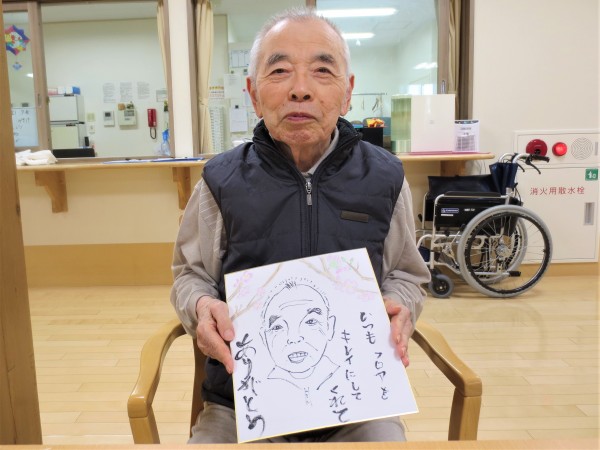 いつも フロアを
キレイにして
くれて
ありがとう
消火用散水栓